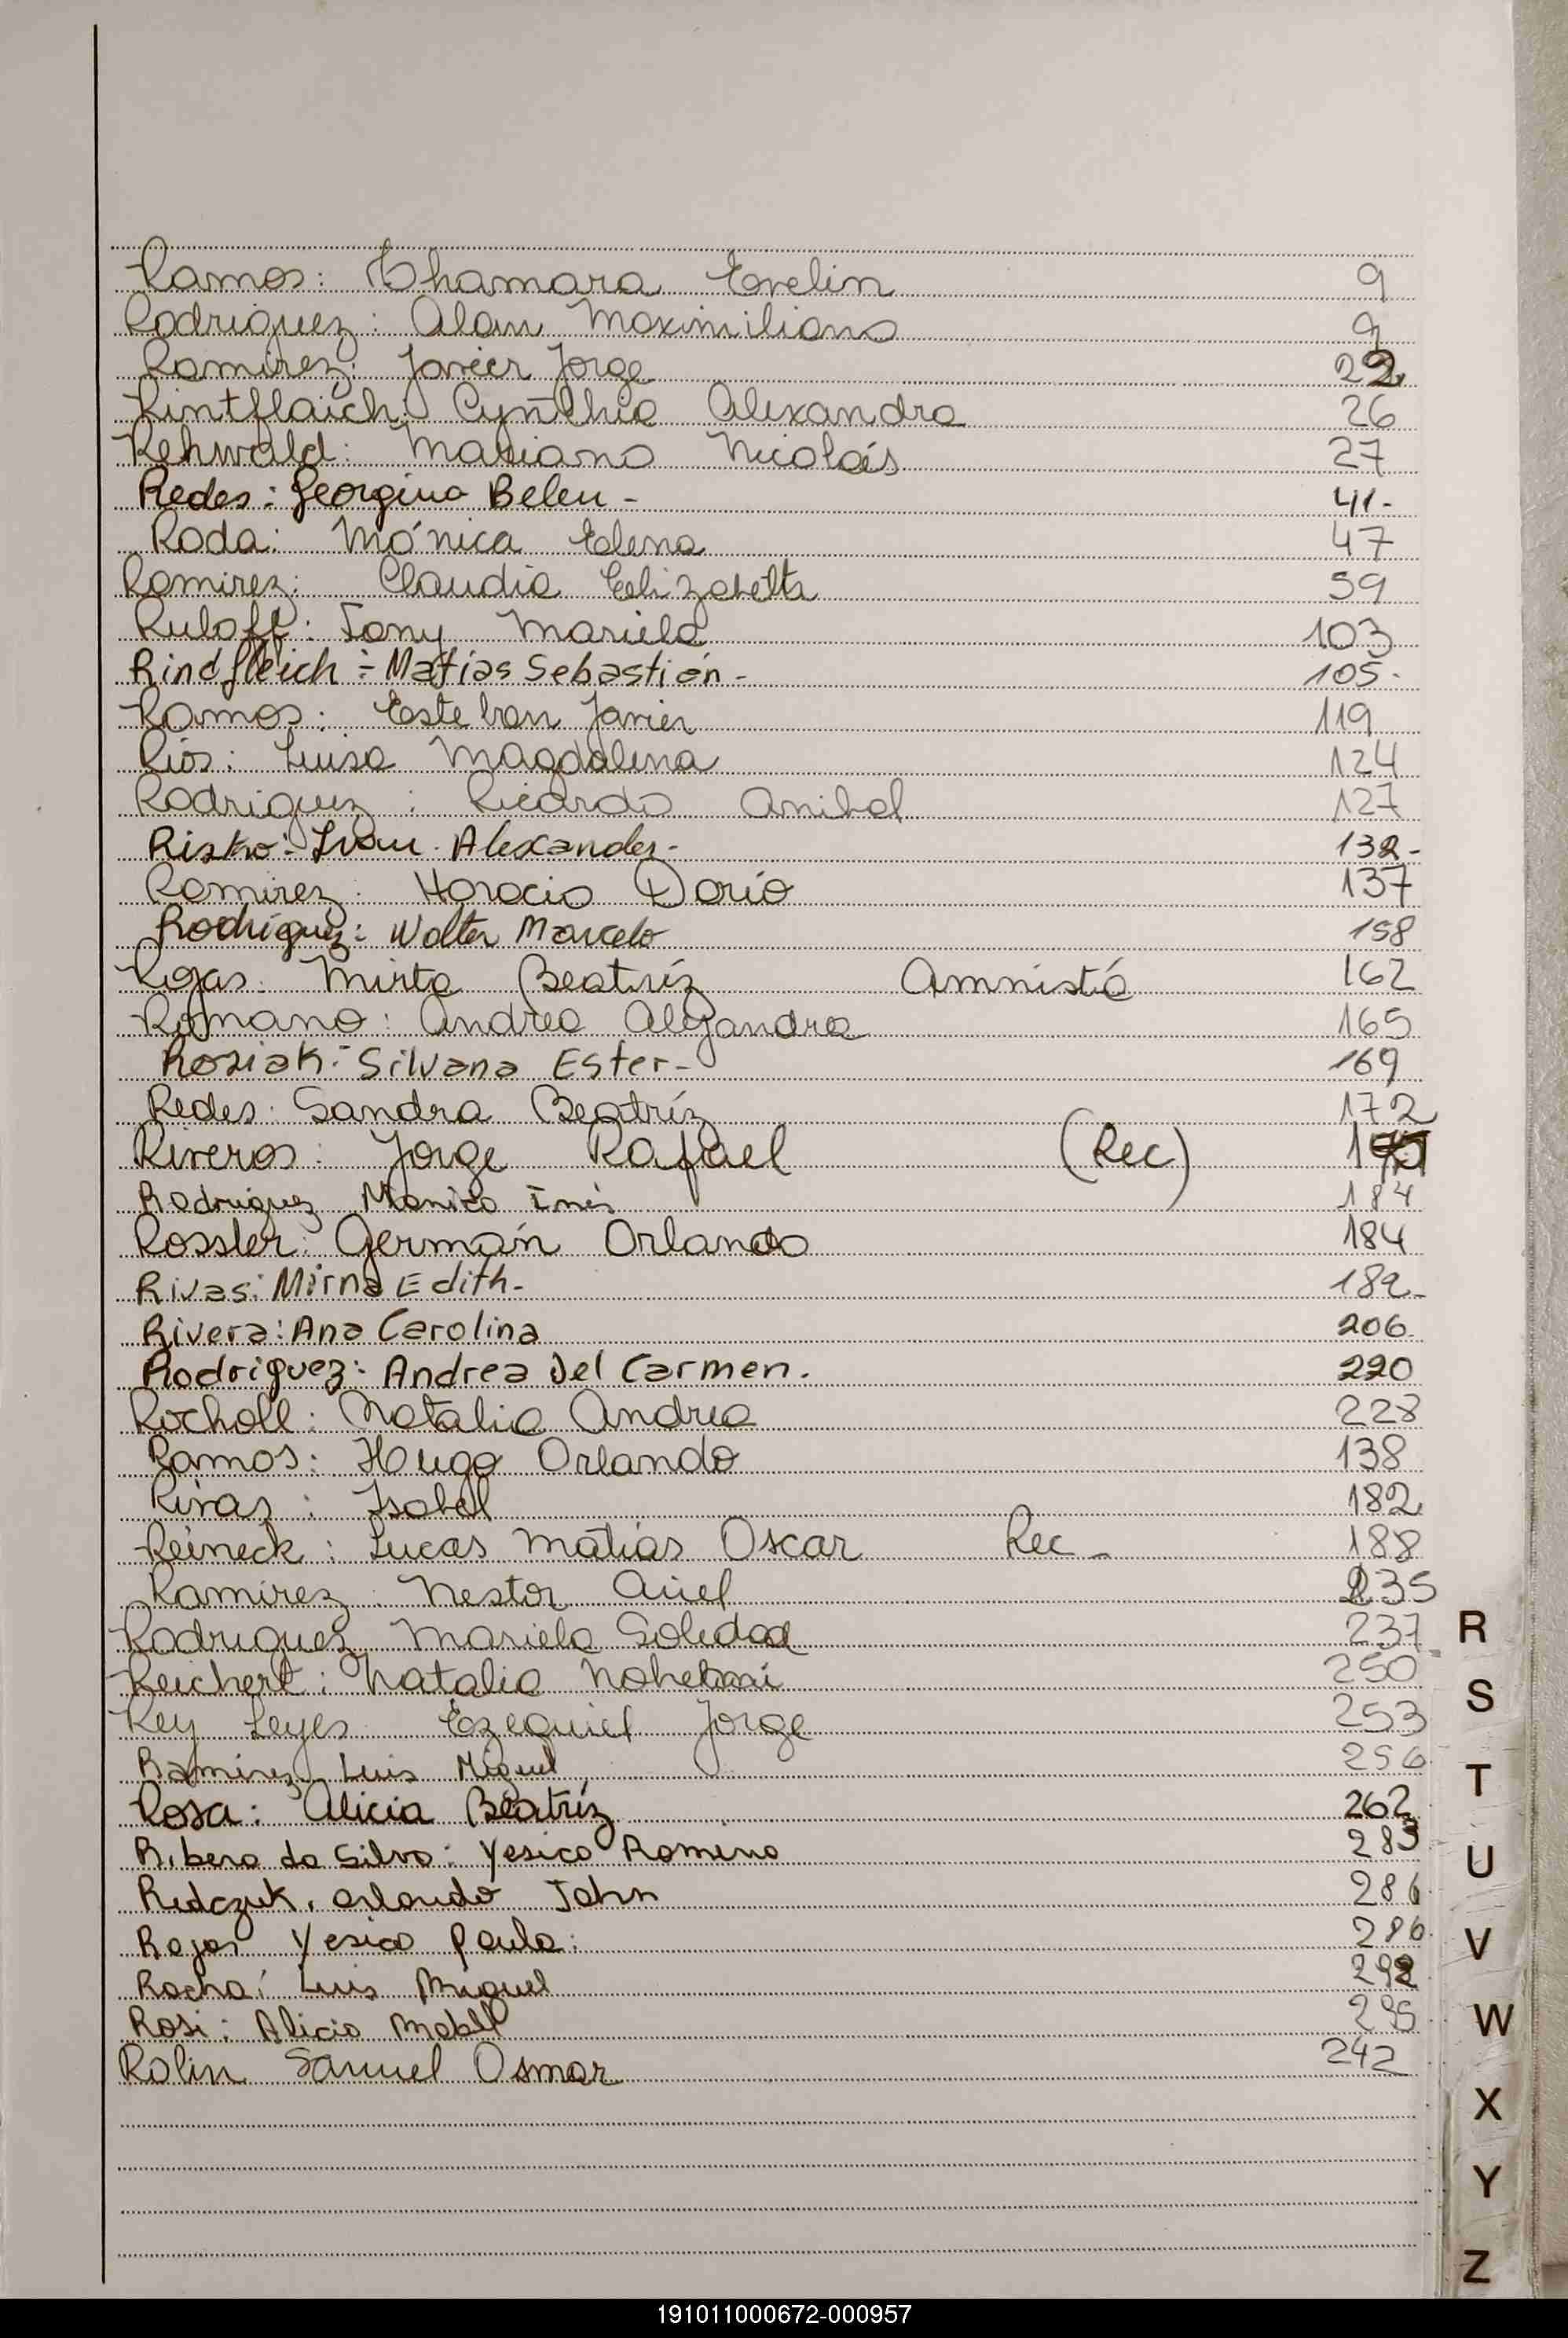 Ramos: Thamara Evelin 9
Rodriguez: Alan Maximiliano 9
Ramirez: Javier Jorge 22
Rintflaich: Cynthia Alexandra 26
Rehwald: Mariano Nicolás 27
Redes: Georgina Belen - 41-
Roda: Mónica Elena 47
Ramirez: Claudia Elizabeth 59
Ruloff: Jony Mariela 103
Rindfleich: Matías Sebastián - 105-
Ramos: Esteban Javier 119
Ríos: Luisa Magdalena 124
Rodriguez: Ricardo Anibal 127
Risko: Ivan Alexander- 132-
Ramirez: Horacio Darío 137
Rodríguez: Walter Marcelo 158
Rojas: Mirta Beatríz Amnistía 162
Romano: Andrea Alejandra 165
Rosiak: Silvana Ester- 169
Redes: Sandra Beatríz 172
Riveros: Jorge Rafael (Rec)
Rodriguez Monica Inés 184
Rossler: Germán Orlando 184
Rivas: Mirna Edith- 189-
Rivera: Ana Carolina 206
Rodriguez: Andrea Del Carmen. 220
Rocholl: Natalia Andrea 228
Ramos: Hugo Orlando 138
Rivas: Isabel 182
Reineck: Lucas Matías Oscar Rec - 188
Ramirez: Nestor Ariel 235
Rodriguez Mariela Soledad 237
Reichert: Natalia 250
Rey Leyes Ezequiel Jorge 253
Ramirez Luis Miguel 256
Rosa: Alicia Beatríz 262
Ribero da Silva: Yesica Romina 283
Redczuk, Orlando John 286
Rojas Yesica Paula: 286
Rocha: Luis Miguel 292
Rosi: Alicia Mabel 295
Rolin Samuel Osmar 242
R
S
T
U
V
W
X
Y
Z
191011000672-000957